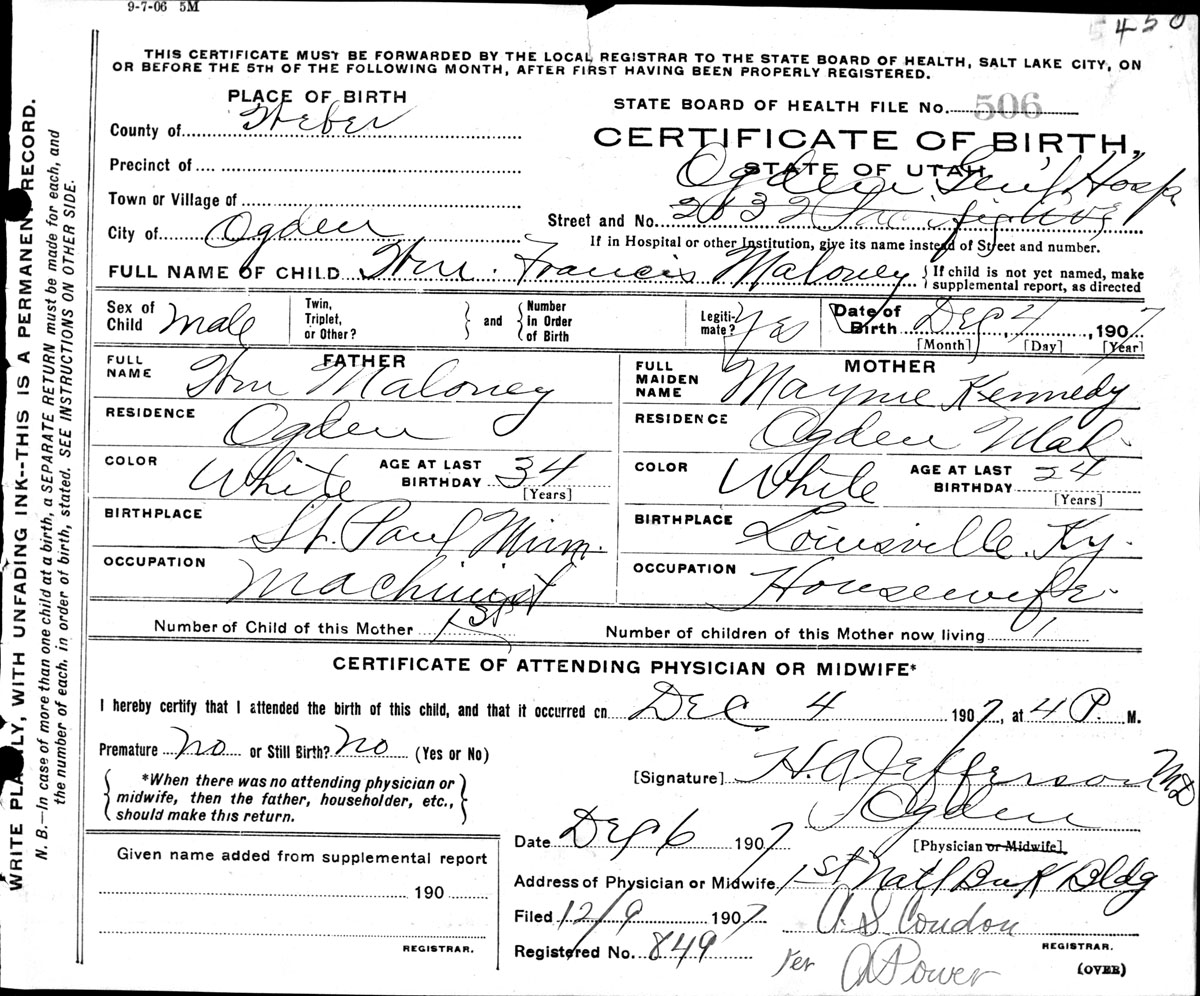 9-7-06 5M
450
THIS CERTIFICATE MUST BE FORWARDED BY THE LOCAL REGISTRAR TO THE STATE BOARD OF HEALTH, SALT LAKE CITY, ON
OR BEFORE THE 5TH OF THE FOLLOWING MONTH, AFTER FIRST HAVING BEEN PROPERLY REGISTERED.
PLACE OF BIRTH
STATE BOARD OF HEALTH FILE No. 506
County of Weber
CERTIFICATE OF BIRTH,
STATE OF UTAH
Precinct of
Ogden Gen'l Hosp
Town or Village of
Street and No. 2632 Pacific Ave
City of Ogden
If in Hospital or other Institution, give its name instead of Street and number.
FULL NAME OF CHILD Wm. Francis Maloney { If child is not yet named, make
supplemental report, as directed
Sex of Child Male
Twin, Triplet, or Other? } and { Number In Order of Birth
Legitimate? Yes
Date of Birth Dec 4, 1907
[Month] [Day] [Year]
FATHER
FULL NAME Wm Maloney
MOTHER
FULL MAIDEN NAME Mayme Kennedy
RESIDENCE Ogden
RESIDENCE Ogden Utah
COLOR White AGE AT LAST BIRTHDAY 34 [Years]
COLOR White AGE AT LAST BIRTHDAY 24 [Years]
BIRTHPLACE St. Paul Minn.
BIRTHPLACE Louisville. Ky.
OCCUPATION Machinist
OCCUPATION Housewife
Number of Child of this Mother 1st
Number of children of this Mother now living 1
CERTIFICATE OF ATTENDING PHYSICIAN OR MIDWIFE*
I hereby certify that I attended the birth of this child, and that it occurred on Dec 4 1907, at 4 P. M.
Premature No or Still Birth? No (Yes or No)
{ *When there was no attending physician or
midwife, then the father, householder, etc.,
should make this return. }
[Signature] H. A. Jefferson MD
Ogden
[Physician or Midwife]
Date Dec 6 1907
Address of Physician or Midwife 1st Nat'l Bank Bldg
Filed 12/9 1907
A. S. Condon
REGISTRAR.
Registered No. 849
Per A Power
(OVER)
Given name added from supplemental report
190
REGISTRAR.
WRITE PLAINLY, WITH UNFADING INK--THIS IS A PERMANENT RECORD.
N. B.—In case of more than one child at a birth, a SEPARATE RETURN must be made for each, and
the number of each, in order of birth, stated. SEE INSTRUCTIONS ON OTHER SIDE.